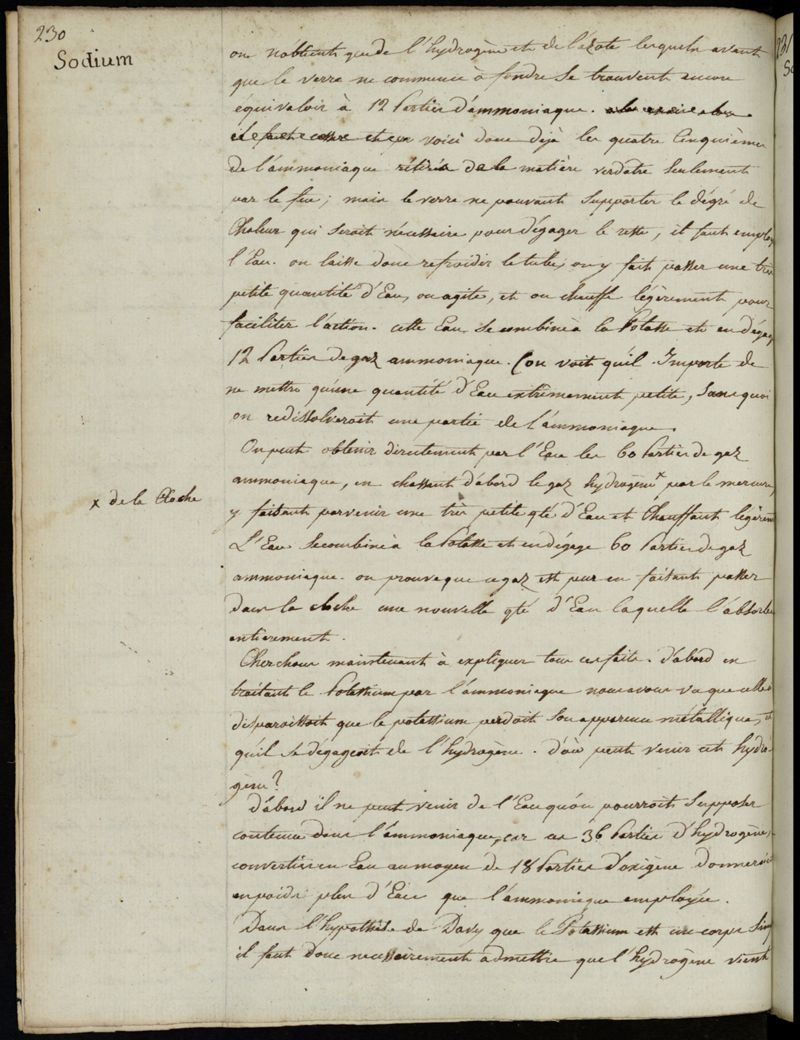 230
Sodium
on n'obtient que de l'hydrogène et de l'azote lesquels avant
que le verre ne commence à fondre se trouvent encore
équivaloir à 12 parties d'ammoniaque.
voici donc déjà les quatre cinquièmes
de l'ammoniaque retirés de la matière verdatre seulement
par le feu ; mais le verre ne pouvant supporter le dégré de
Chaleur qui seroit nécessaire pour dégager le reste, il faut employ
l'Eau. on laisse donc refroidir le tube ; on y fait passer une très
petite quantité d'Eau, on agite, et on chauffe légèrement pour
faciliter l'action. cette Eau se combine à la Potasse et en dégage
12 Parties de gaz ammoniaque. (on voit qu'il Importe de
ne mettre qu'une quantité d'Eau extrêmement petite, sans quoi
on redissolveroit une partie de l'ammoniaque.
On peut obtenir directement par l'Eau les 60 Parties de gaz
ammoniaque, en chassant d'abord le gaz hydrogène x par le mercure,
x de la Cloche
y faisant parvenir une très petite qté d'Eau et Chauffant légèrem
L'Eau se combine à la Potasse et en dégage 60 Parties de gaz
ammoniaque. on prouve que ce gaz est pur en faisant passer
dans la cloche une nouvelle qté d'Eau laquelle l'absorbe
entierement.
Cherchons maintenant à expliquer tous ces faits. d'abord en
traitant le Potassium par l'ammoniaque nous avons vu que celle
disparoissoit que le potassium perdoit son apparence métallique, et
qu'il se dégageoit de l'hydrogène. d'où peut venir cet hydro-
gène ?
d'abord il ne peut venir de l'Eau qu'on pourroit supposer
contenue dans l'ammoniaque, car ces 36 Parties d'hydrogène,
converties en Eau au moyen de 18 Parties d'oxigène donneroient
en poids plus d'Eau que l'ammoniaque employée.
Dans l'hypothèse de Davy que le Potassium est un corps Simp
il faut Donc necessairement admettre que l'hydrogène vient
231